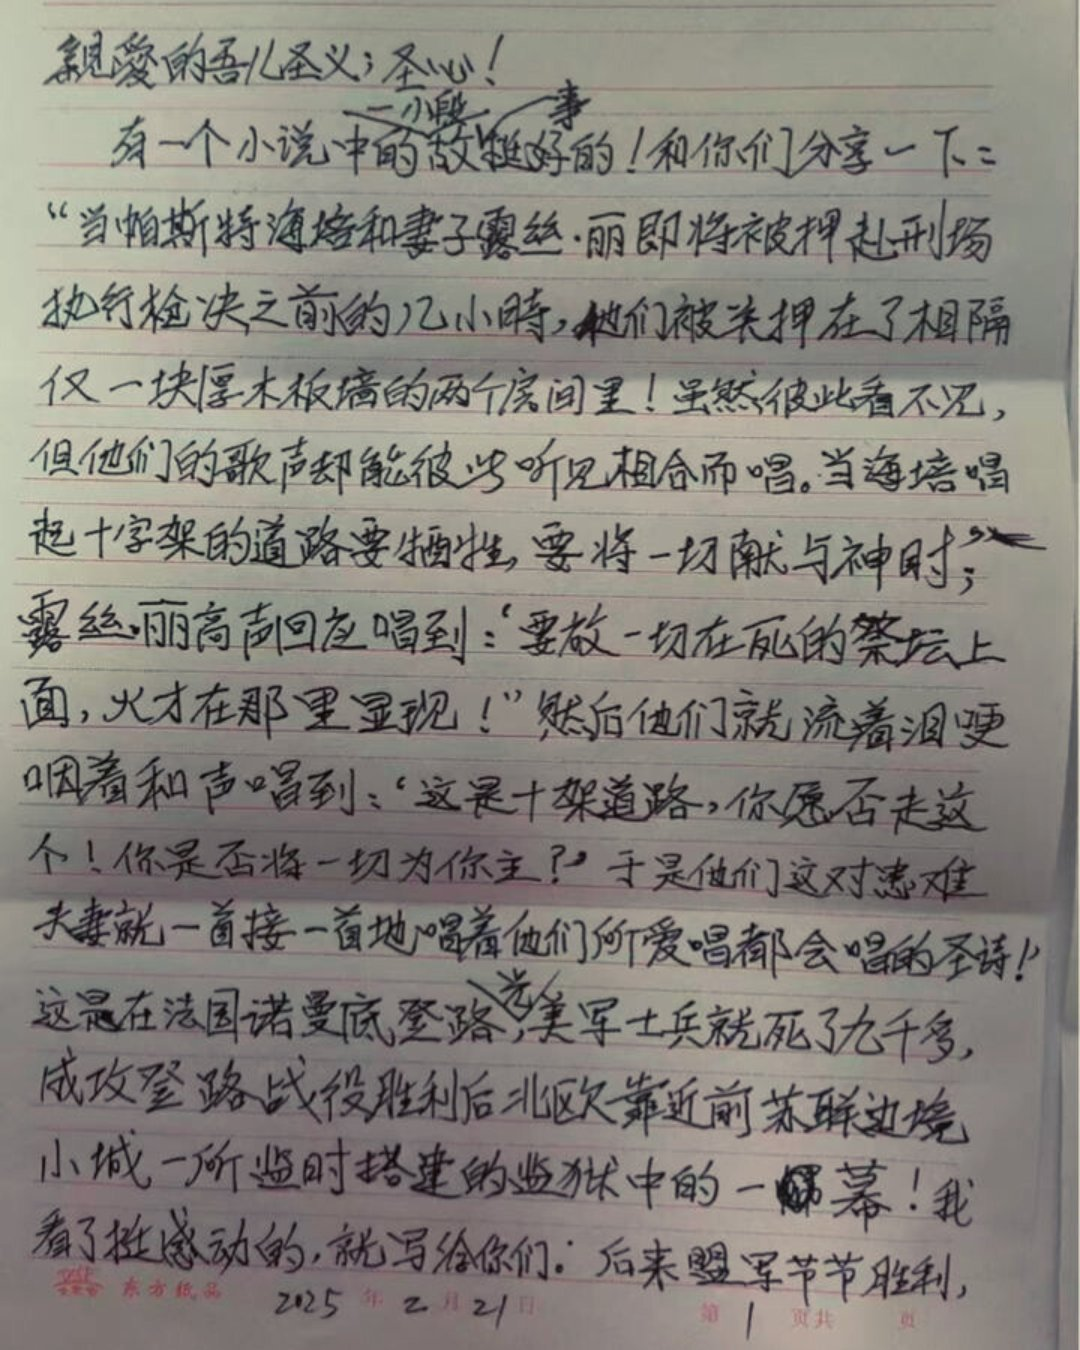 親愛的吾儿圣义；圣心！
一小段 事
有一个小说中的故挺好的！和你们分享一下：
“当帕斯特海培和妻子露丝·丽即将被押赴刑场
执行枪决之前的几小時，他们被关押在了相隔
仅一块厚木板墙的两个房间里！虽然彼此看不见，
但他们的歌声却能彼此听见相合而唱。当海培唱
起十字架的道路要牺牲，要将一切献与神时”；
露丝·丽高声回应唱到：‘要放一切在死的祭坛上
面，火才在那里显现！”然后他们就流着泪哽
咽着和声唱到：‘这是十架道路，你愿否走这
个！你是否将一切为你主？’于是他们这对患难
夫妻就一首接一首地唱着他们所爱唱都会唱的圣诗！’
这是在法国诺曼底登路，光美军士兵就死了九千多，
成攻登路战役胜利后北欧靠近前苏联边境
小城一所监时搭建的监狱中的一幕！我
看了挺感动的，就写给你们：后来盟军节节胜利，
东方纸品
2025年2月21日 第1页共 页